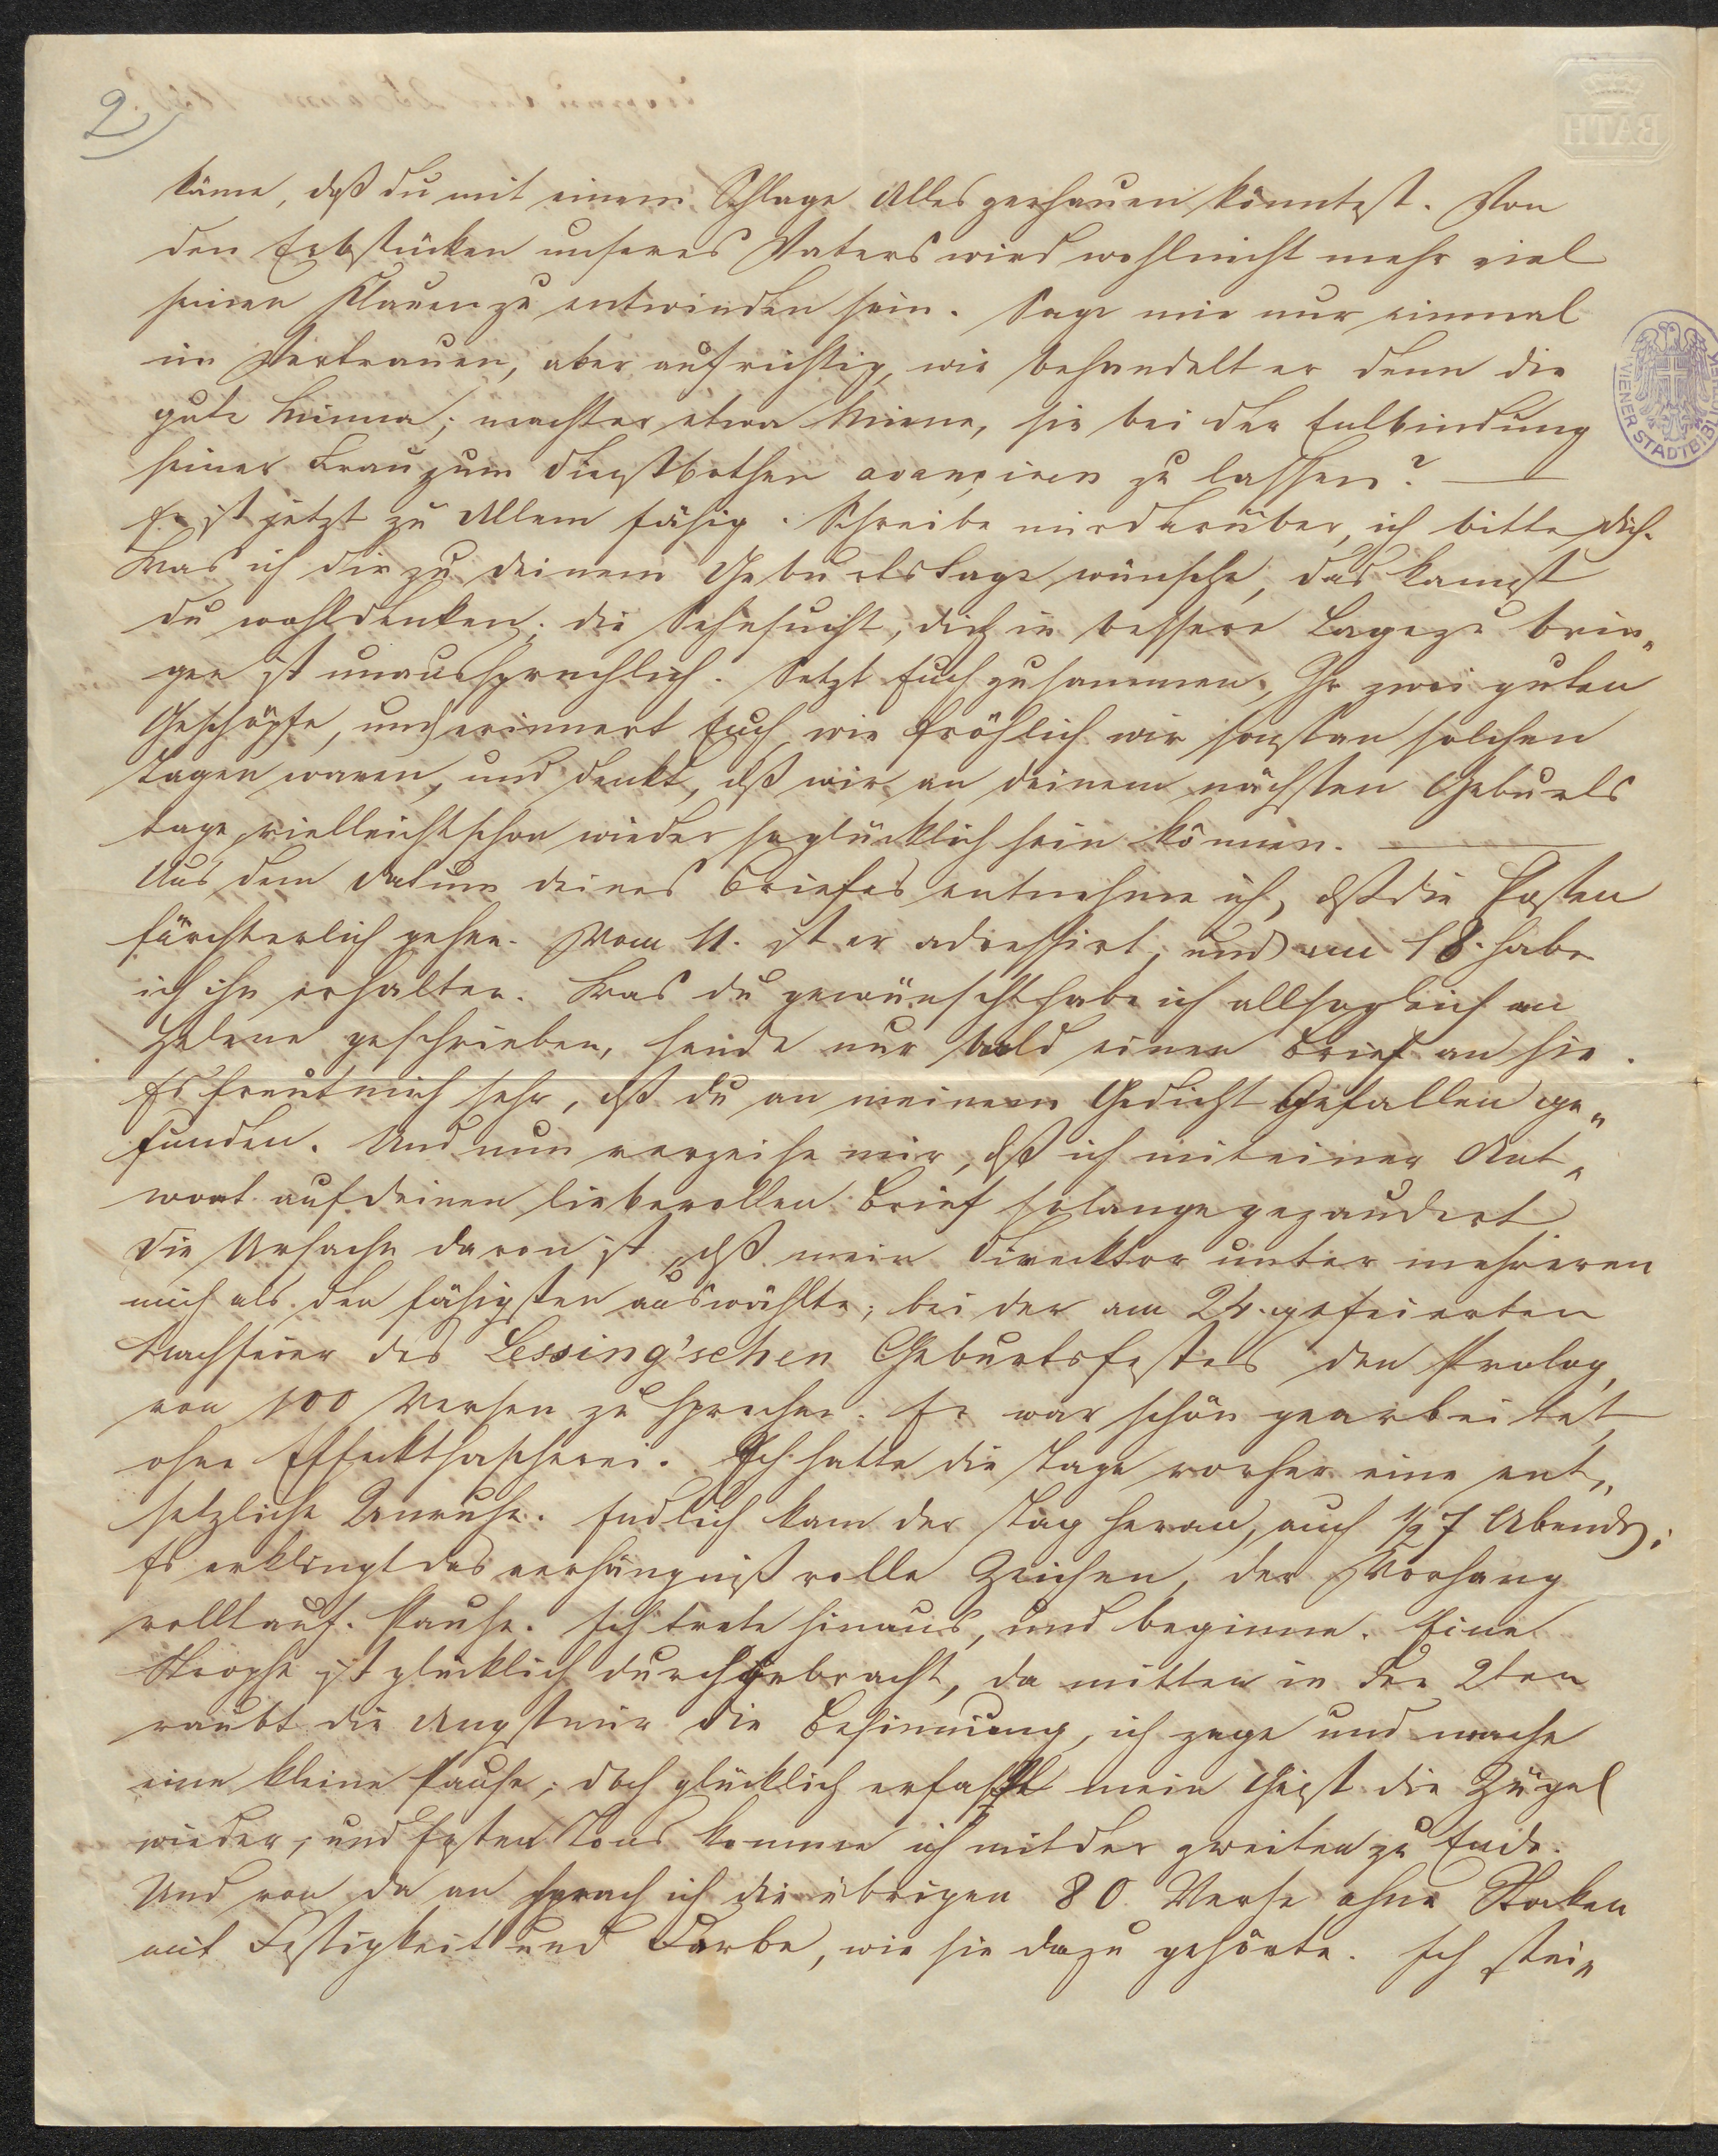 2)
BATH
käme, daß du mit einem Schlage Alles zerhauen könntest. Von
den Erbstücken unseres Vaters wird wohl nicht mehr viel
seinen Klauen zu entwinden sein. Sage mir nur einmal
im Vertrauen, aber aufrichtig, wie behandelt er denn die
gute Minna; macht er etwa Miene, sie bei der Entbindung
seiner Frau zum Dienstbothen avançiren zu lassen? —
Er ist jetzt zu Allem fähig. Schreibe mir darüber, ich bitte dich.
Was ich dir zu deinem Geburtstage wünsche, das kannst
du wohl denken; die Sehnsucht, dich in bessere Lage zu brin„
gen ist unaussprechlich. Setzt Euch zusammen, Ihr zwei guten
Geschöpfe, und erinnert Euch, wie fröhlich wir sonst an solchen
Tagen waren, und denkt, dß wir an deinem nächsten Geburts
tage vielleicht schon wieder so glücklich sein können. —
Aus dem Datum deines Briefes entnehme ich, dß die Posten
fürchterlich gehen. Vom 11. ist er adressirt, und am 18. habe
ich ihn erhalten. Was du gewünscht habe ich allsogleich an
Helene geschrieben, sende nur bald einen Brief an sie.
Es freut mich sehr, dß du an meinem Gedicht Gefallen ge„
funden. Und nun verzeihe mir, dß ich mit einer Ant„
wort auf deinen liebevollen Brief so lange gezaudert
Die Ursache davon ist, dß mein Direcktor unter mehreren
mich als den fähigsten auswählte, bei der am 24. gefeierten
Nachfeier des Lessing'schen Geburtsfestes den Prolog,
von 100 Versen zu sprechen. Er war schön gearbeitet,
ohne Effekthascherei. Ich hatte die Tage vorher eine ent„
setzliche Unruhe. Endlich kam der Tag heran, auch ½ 7 Abends;
Es erklingt das verhängnißvolle Zeichen, der Vorhang
rollt auf. Pause. Ich trete hinaus, und beginne. Eine
Strophe ist glücklich durchgebracht, da mitten in der 2ten
raubt die Angst mir die Besinnung, ich zage und mache
eine kleine Pause; doch glücklich erfaßt mein Geist die Zügel
wieder, und festen Tons komme ich mit der zweiten zu Ende.
Und von da an sprach ich die übrigen 80 Verse ohne Stocken
mit Festigkeit und Farbe, wie sie dazu gehörte. Ich stei„
WIENER STADTBIBL